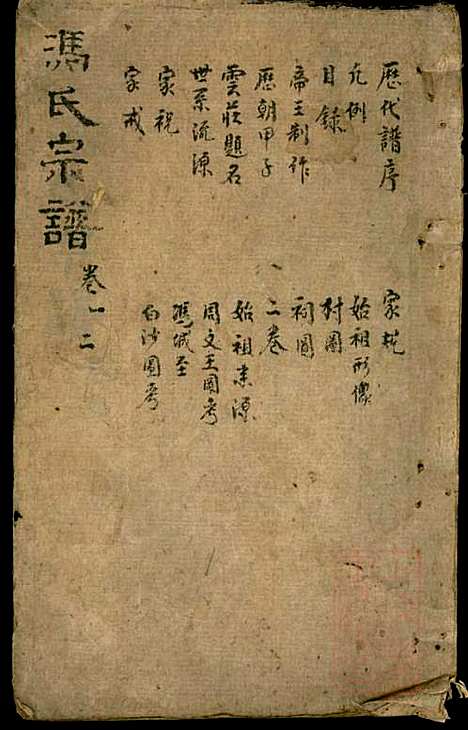 馮氏宗譜
卷一二
歷代譜序
凡例
目錄
帝王制作
歷朝甲子
雲莊題名
世系流源
家祝
家戒
家
始祖形像
村圖
祠圖
二卷
始祖来源
周文王圖考
馮城
白沙圖考